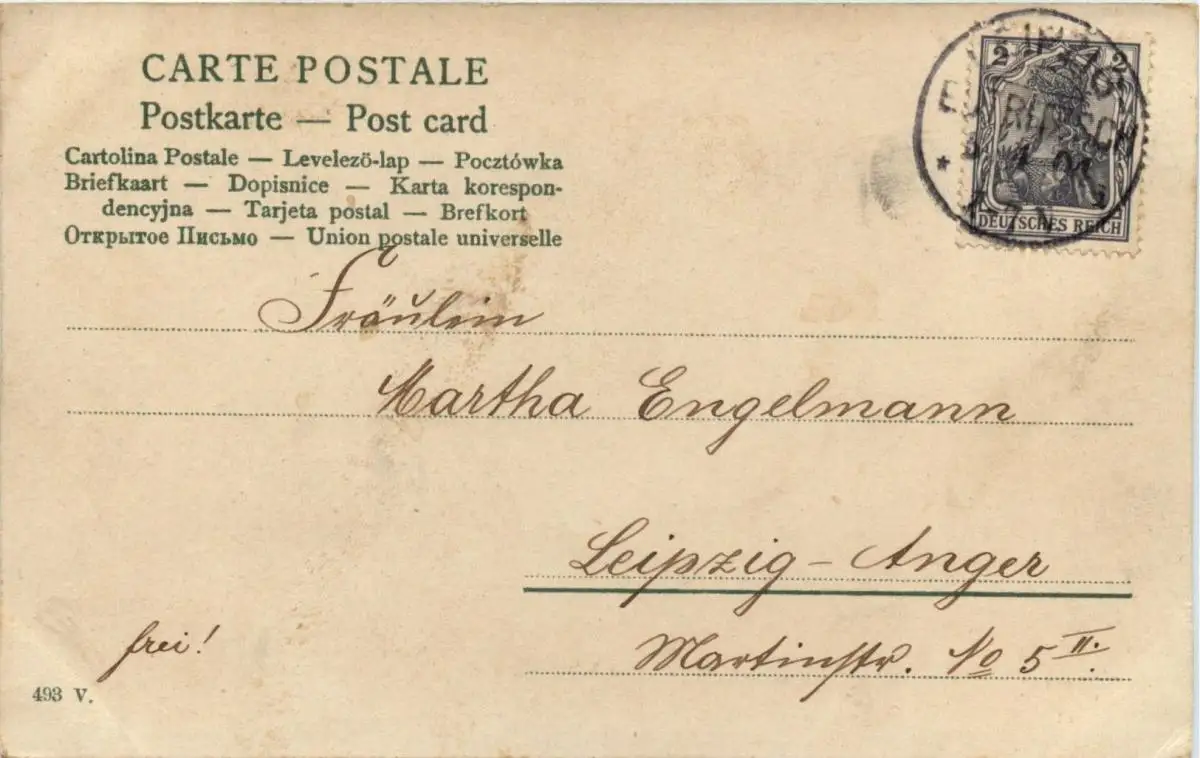 CARTE POSTALE
Postkarte — Post card
Cartolina Postale — Levelező-lap — Pocztówka
Briefkaart — Dopisnice — Karta korespon-
dencyjna — Tarjeta postal — Brefkort
Открытое Письмо — Union postale universelle
2 2
DEUTSCHES REICH
Fräulein
Martha Engelmann
Leipzig - Anger
Martinstr. No 5 II.
frei!
493 V.